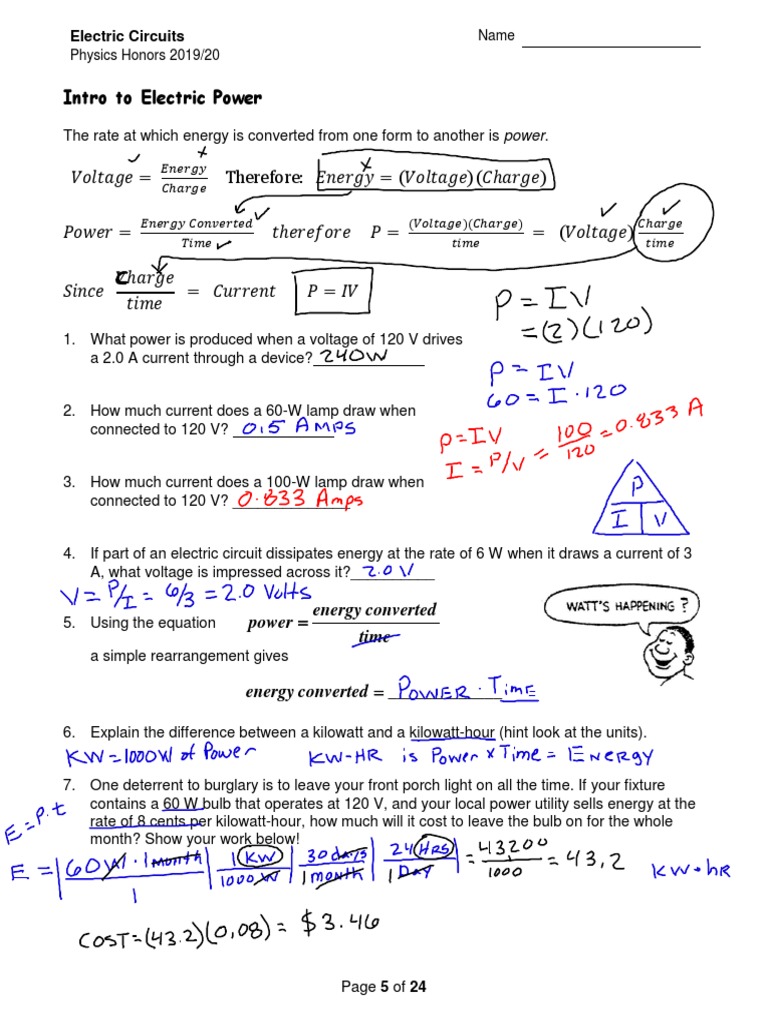 Electric Circuits
Name
Physics Honors 2019/20
Intro to Electric Power
The rate at which energy is converted from one form to another is power.
Voltage = Energy / Charge Therefore: Energy = (Voltage)(Charge)
Power = Energy Converted / Time therefore P = (Voltage)(Charge) / time = (Voltage) Charge / time
Since Charge / time = Current P = IV
P = IV
= (2)(120)
1. What power is produced when a voltage of 120 V drives
a 2.0 A current through a device? 240W
P = IV
60 = I · 120
2. How much current does a 60-W lamp draw when
connected to 120 V? 0.5 AMPS
P=IV
I = P/V = 100/120 = 0.833 A
3. How much current does a 100-W lamp draw when
connected to 120 V? 0.833 Amps
P
I V
4. If part of an electric circuit dissipates energy at the rate of 6 W when it draws a current of 3
A, what voltage is impressed across it? 2.0 V
V = P/I = 6/3 = 2.0 Volts
WATT'S HAPPENING?
5. Using the equation power = energy converted / time
a simple rearrangement gives
energy converted = POWER · Time
6. Explain the difference between a kilowatt and a kilowatt-hour (hint look at the units).
KW=1000W of Power KW-HR is Power × Time = ENERGY
7. One deterrent to burglary is to leave your front porch light on all the time. If your fixture
contains a 60 W bulb that operates at 120 V, and your local power utility sells energy at the
rate of 8 cents per kilowatt-hour, how much will it cost to leave the bulb on for the whole
month? Show your work below!
E = P.t
E = |60W · 1 month / 1 | 1 KW / 1000 W | 30 days / 1 month | 24 HRS / 1 Day | = 43200 / 1000 = 43,2 KW·hR
COST = (43.2)(0,08) = $3.46
Page 5 of 24